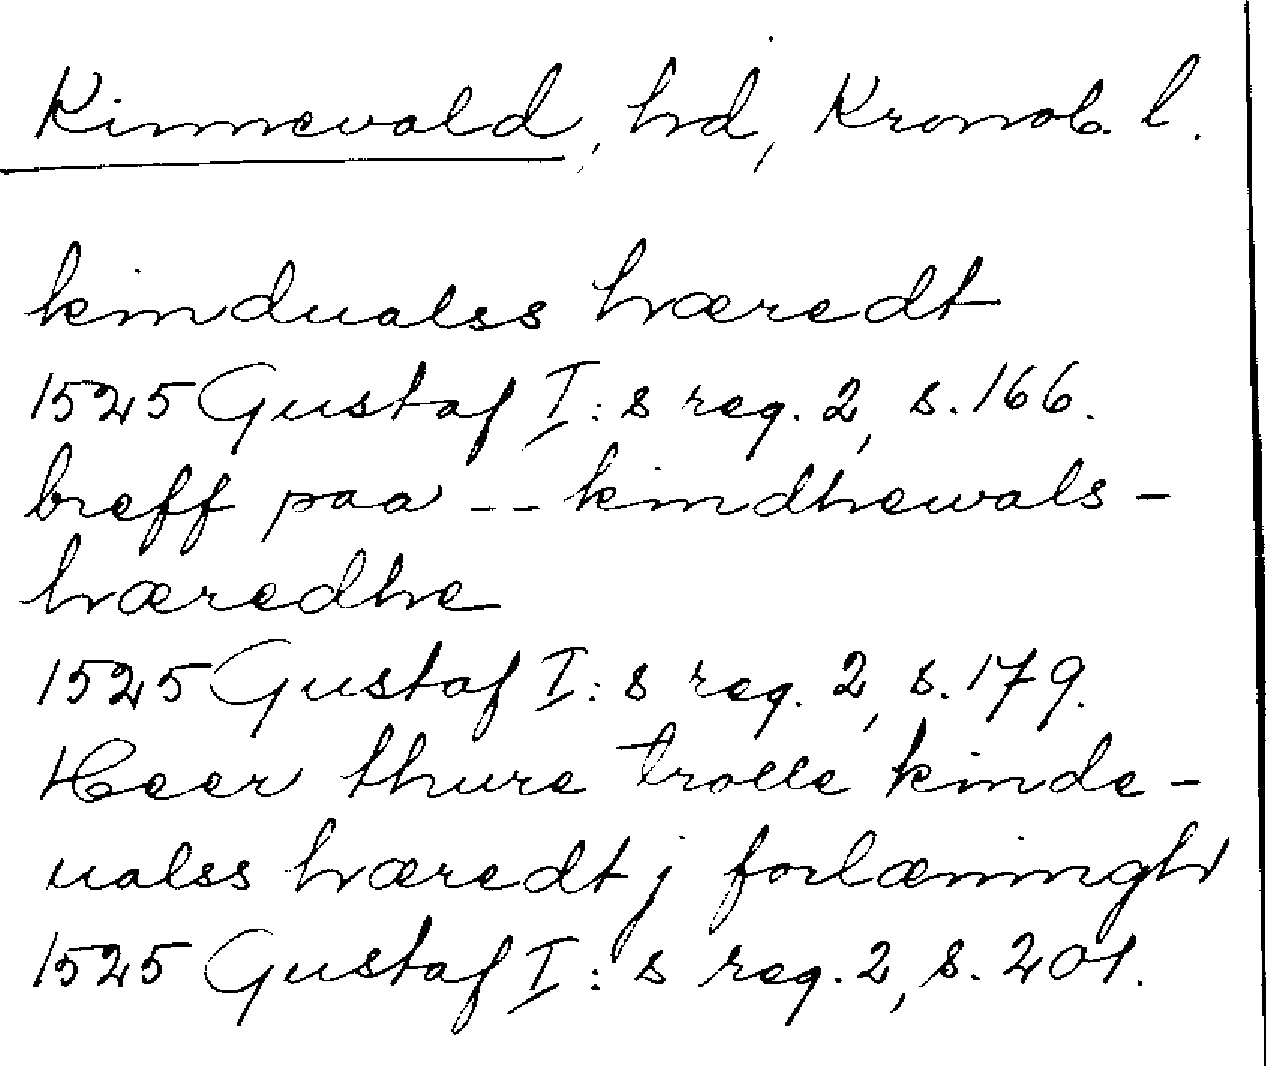 Kinnevald, hd, Kronob. l.
kindualss hæredt
1525 Gustaf I:s reg. 2, s. 166.
breff paa -- kindhewals-
hæredhe
1525 Gustaf I:s reg. 2, s. 179.
Heer thure trolle kinde-
ualss hæredt j forlæningh
1525 Gustaf I:s reg. 2, s. 201.